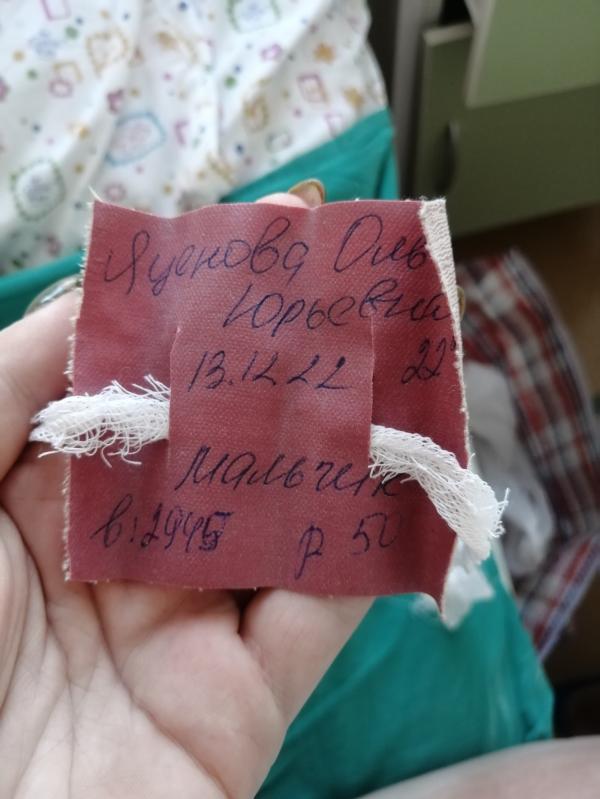 Яценова Оль
Юрьевна
13.12.22 22
Мальчик
в: 2945 р 50